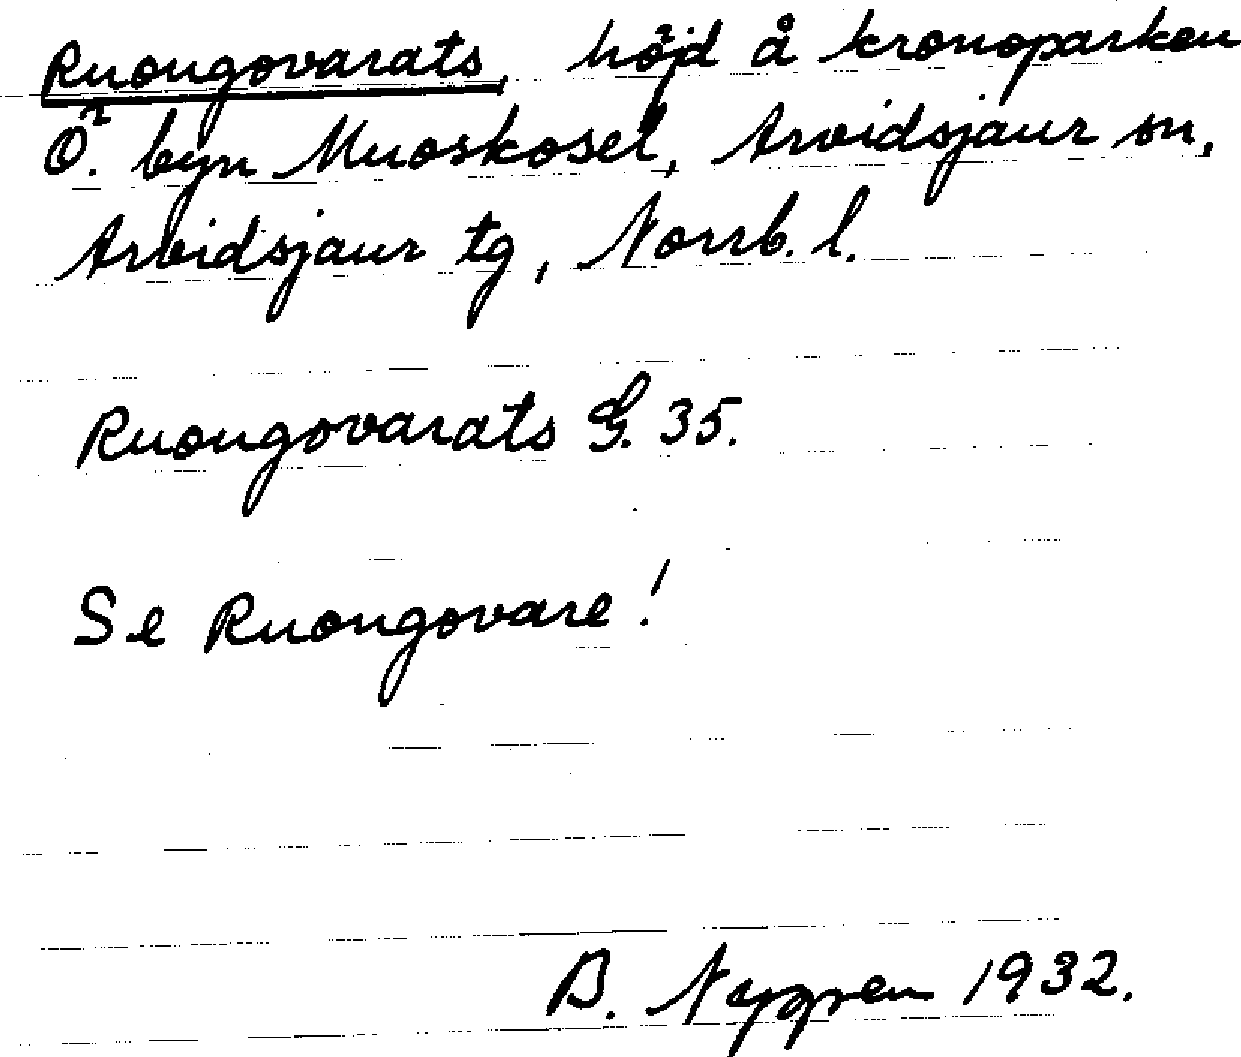 Ruongovarats, höjd å kronoparken
Ö. byn Muoskosel, Arvidsjaur sn,
Arvidsjaur tg, Norrb. l.
Ruongovarats G. 35.
Se Ruongovare!
B. Nygren 1932.